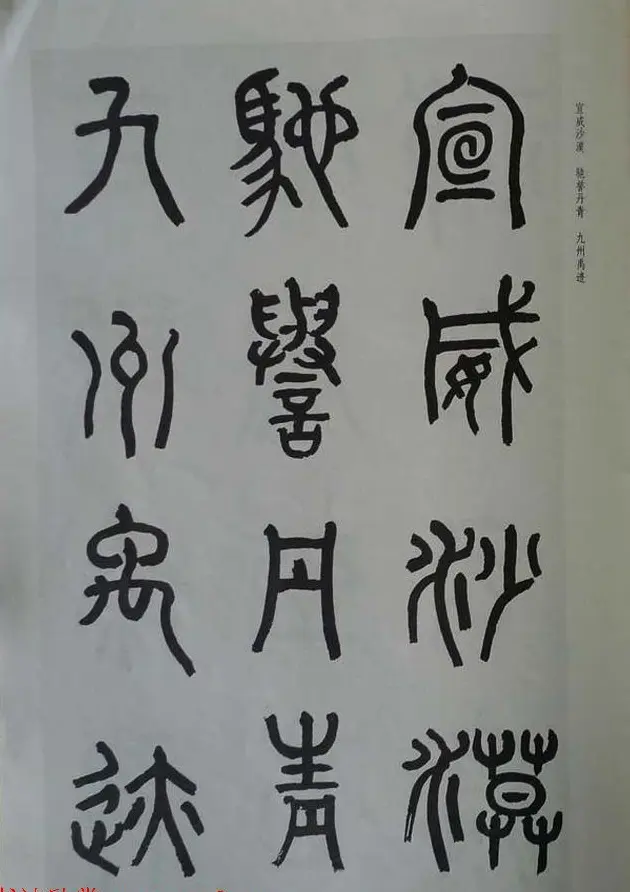 宣威沙漠　馳譽丹青　九州禹迹
宣威沙漠
馳譽丹青
九州禹迹